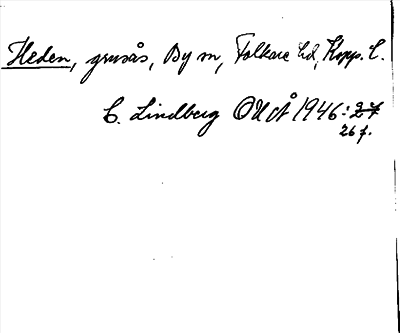 Heden, grusås, By sn, Folkare hd, Kopp. l.
C. Lindberg OUÅ 1946: 27
26 f.